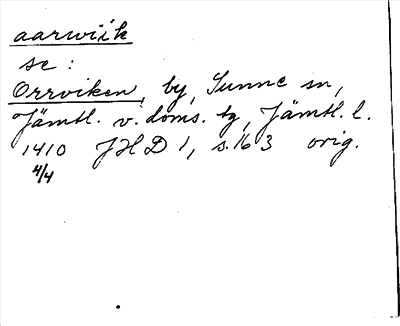 aarwiik
se:
Orrviken, by, Sunne sn,
Jämtl. v. doms. tg, Jämtl. l.
1410 JHD 1, s. 163 orig.
4/4